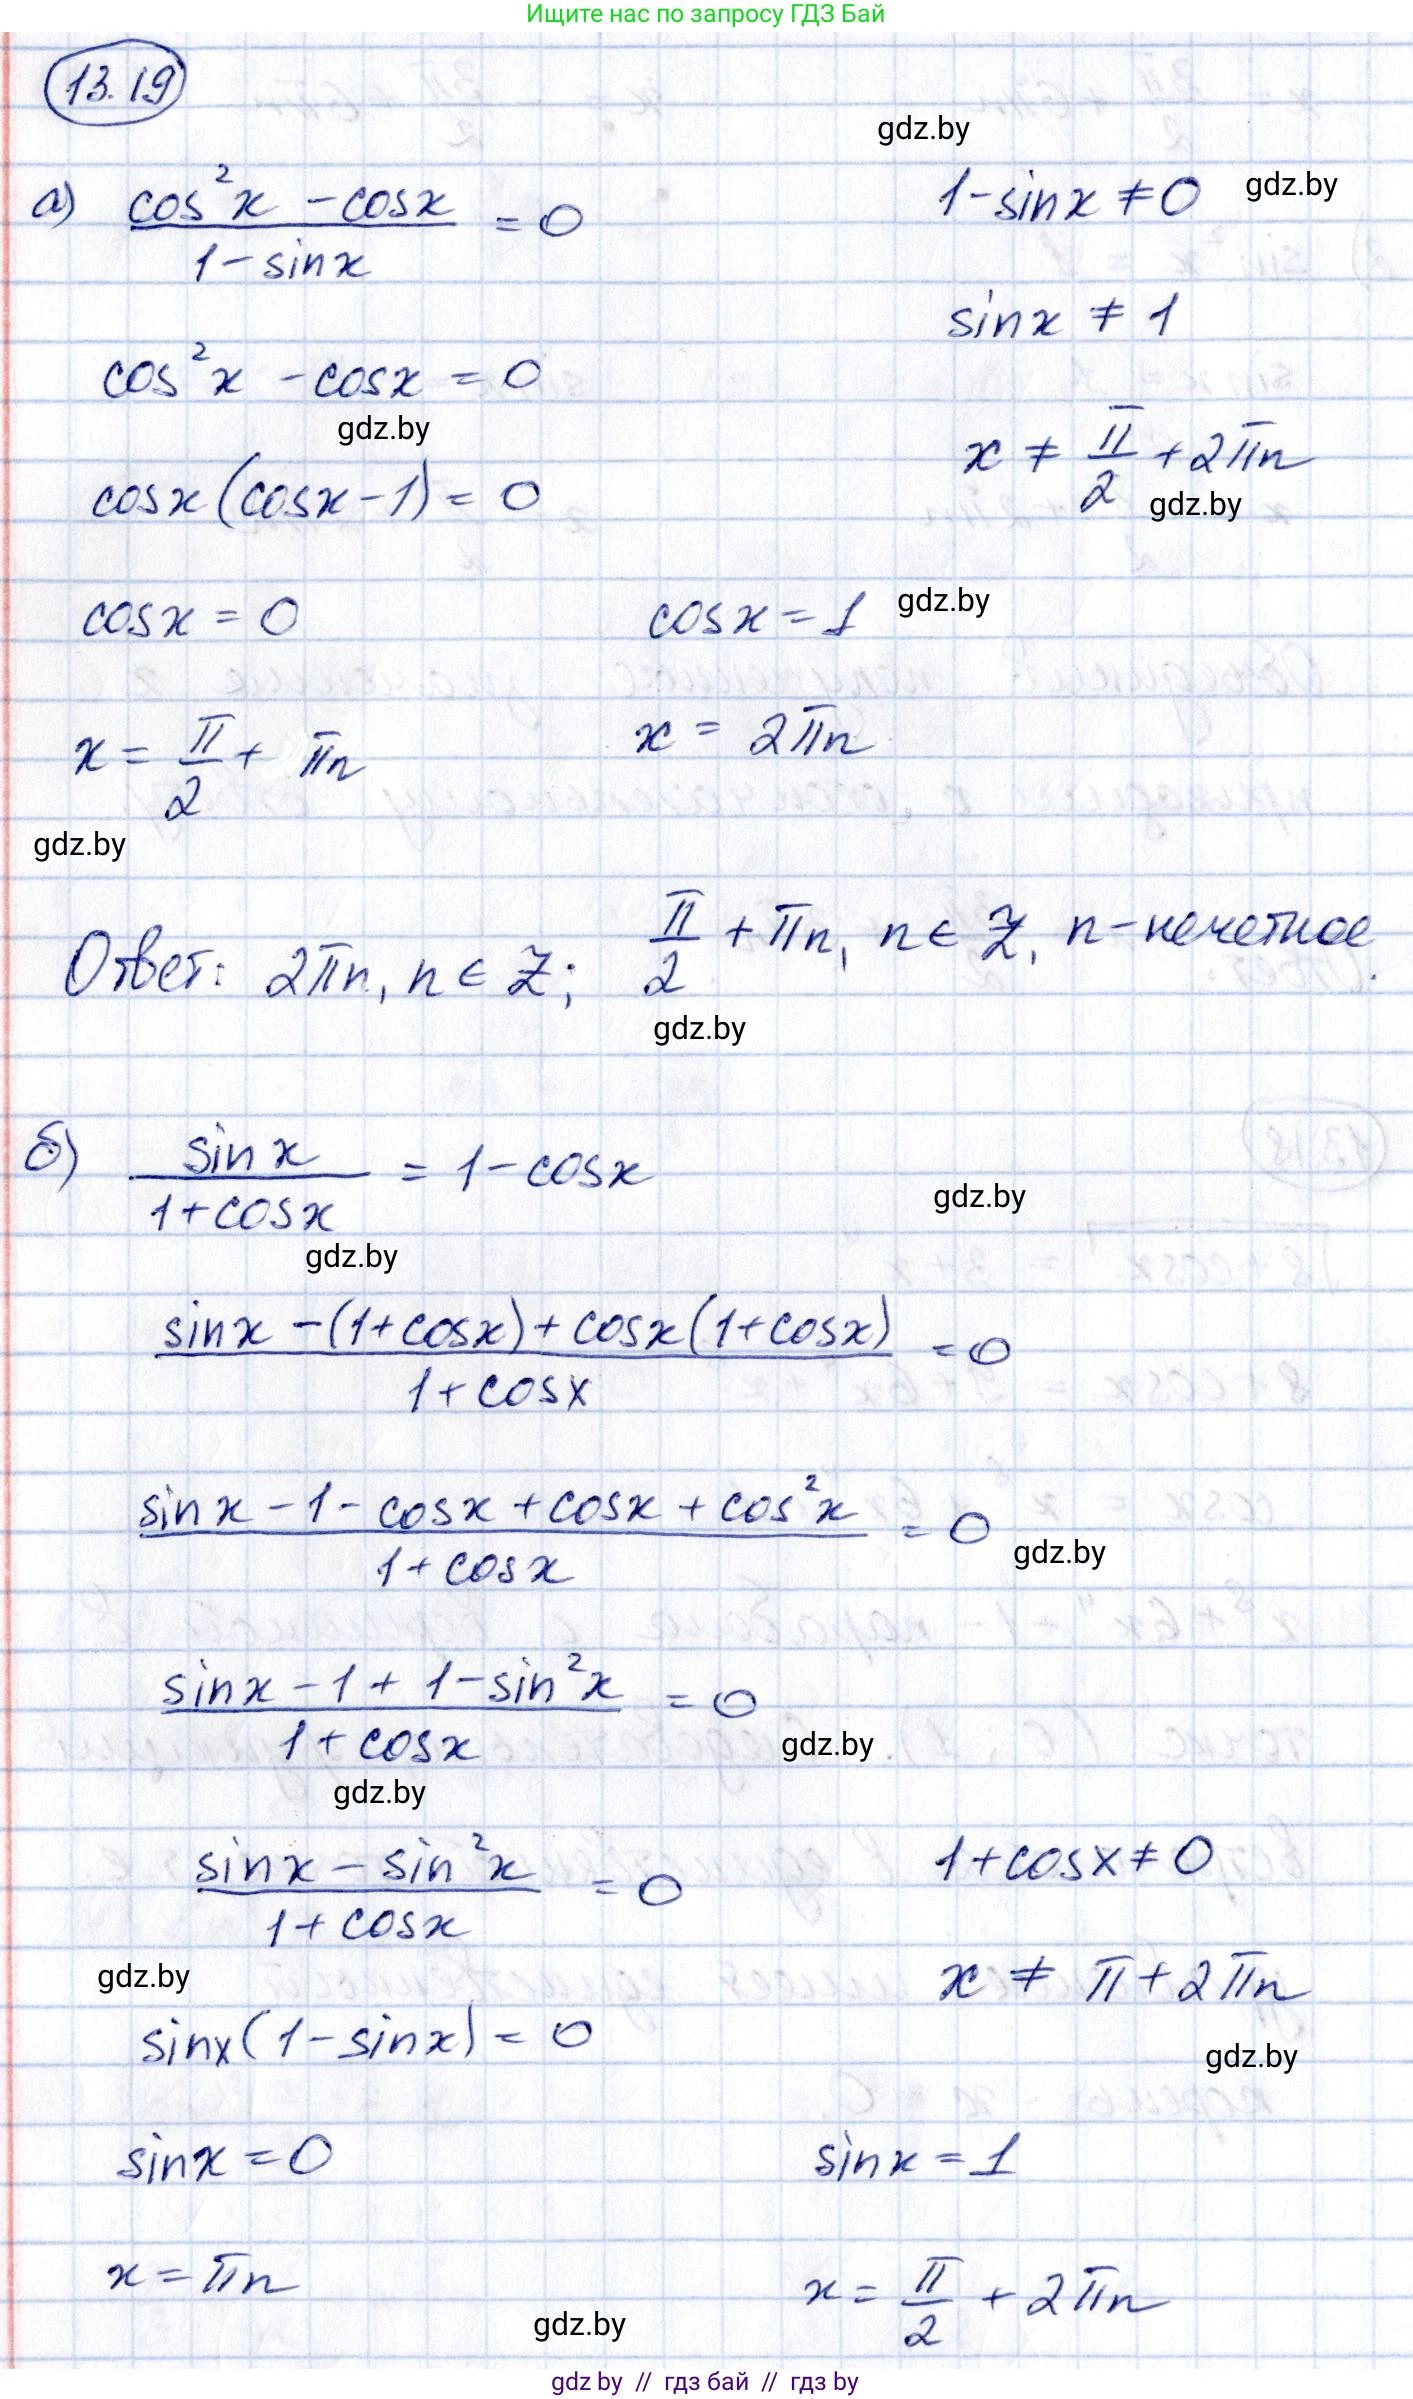 Ищите нас по запросу ГДЗ Бай
13.19
gdz.by
а) (cos²x - cosx)/(1 - sinx) = 0
1 - sinx ≠ 0
gdz.by
sinx ≠ 1
cos²x - cosx = 0
gdz.by
x ≠ π/2 + 2πn
cosx(cosx - 1) = 0
gdz.by
cosx = 0
cosx = 1
gdz.by
x = π/2 + πn
x = 2πn
gdz.by
Ответ: 2πn, n ∈ Z; π/2 + πn, n ∈ Z, n - нечетное.
gdz.by
б) sinx/(1 + cosx) = 1 - cosx
gdz.by
gdz.by
(sinx - (1 + cosx) + cosx(1 + cosx))/(1 + cosx) = 0
(sinx - 1 - cosx + cosx + cos²x)/(1 + cosx) = 0
gdz.by
(sinx - 1 + 1 - sin²x)/(1 + cosx) = 0
gdz.by
gdz.by
(sinx - sin²x)/(1 + cosx) = 0
1 + cosx ≠ 0
gdz.by
x ≠ π + 2πn
sinx(1 - sinx) = 0
gdz.by
sinx = 0
sinx = 1
x = πn
x = π/2 + 2πn
gdz.by
gdz.by // гдз бай // гдз by